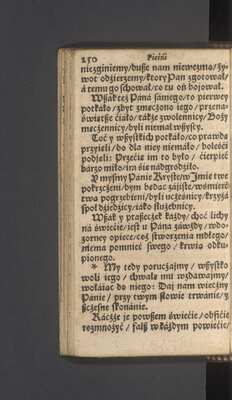 250 Pieśni
niezginiemy/duße nam niewezmą/ży-
wot odzierżemy/który Pan zgotował/
a temu go schował/co tu oń bojował.
Wßakteż Pána sámego/to pierwey
potkáło/zbyt zmęczono iego/przená-
świętße ćiáło/tákże zwolennicy/Boży
meczennicy/byli niemal wßyscy.
Toć y wßystkich potkáło/co prawdę
przyięli/bo dla niey niemáło/boleści
podjeli: Przecia im to było/ćierpieć
bárzo miło/im sie nádgrodziło.
Y myśmy Pánie Kryste/w Jmie twe
pokrzczeni/bym bedąc záiste/w śmierć
twą pogrzebieni/byli vczesnicy/krzyżá
społ dziedzicy/iáko służebnicy.
Wßak y práßczek káżdy/choć lichy
ná świećie/iest v Páná záwżdy/w do-
zorney opiece/coż stworzenia mdłego/
niema pomnieć swego/krwią odku-
pionego.
* My tedy poruczáymy/wßystko
woli iego/chwałę mu wzdawaymy/
wołáiąc do niego: Day nam wieczny
Pánie/przy twym słowie trwánie/y
ßczęsne skonánie.
Racżże ie powßem świećie/obfićie
rozmnożyć/fałß w káżdym powiećie/